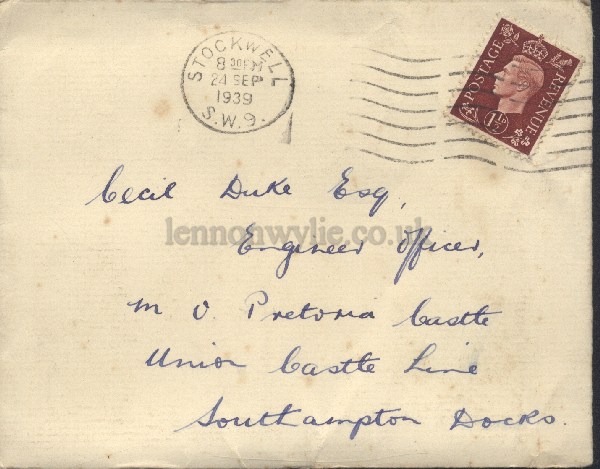 STOCKWELL
8 30 PM
24 SEP
1939
S.W.9.
POSTAGE
REVENUE
1½ D
Cecil Duke Esq,
lennonwylie.co.uk
Engineer Officer,
M V Pretoria Castle
Union Castle Line
Southampton Docks.